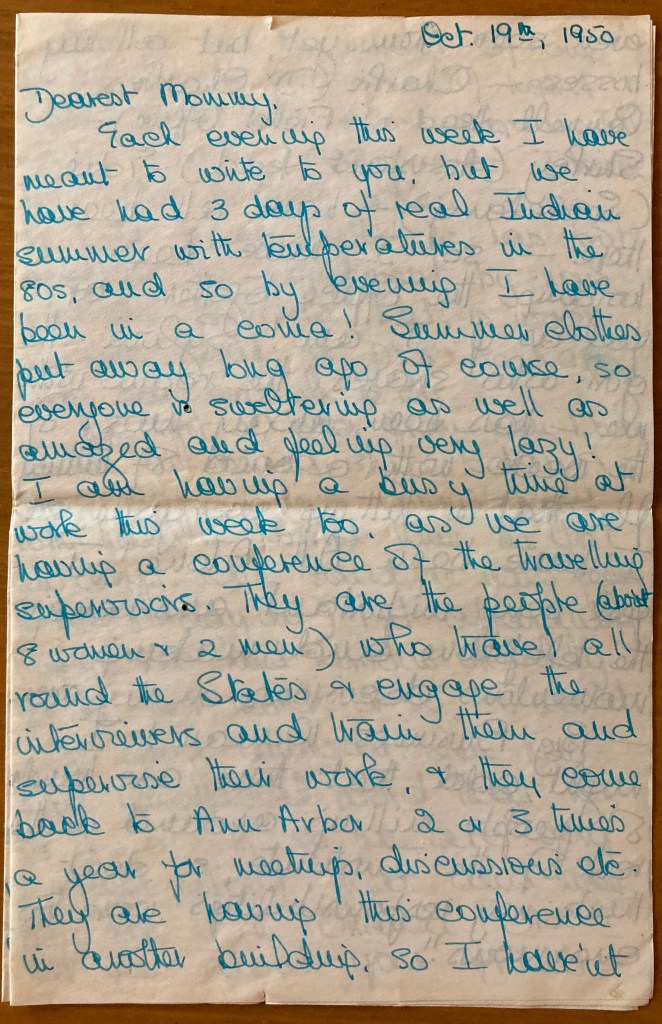 Oct. 19th, 1950
Dearest Mommy,
Each evening this week I have
meant to write to you, but we
have had 3 days of real Indian
summer with temperatures in the
80s, and so by evening I have
been in a coma! Summer clothes
put away long ago of course, so
everyone is sweltering as well as
amazed and feeling very lazy!
I am having a busy time at
work this week too, as we are
having a conference of the travelling
supervisors. They are the people (about
8 women & 2 men) who travel all
round the States & engage the
interviewers and train them and
supervise their work, & they come
back to Ann Arbor 2 or 3 times
a year for meeting, discussions etc.
They are having this conference
in another building, so I have'nt